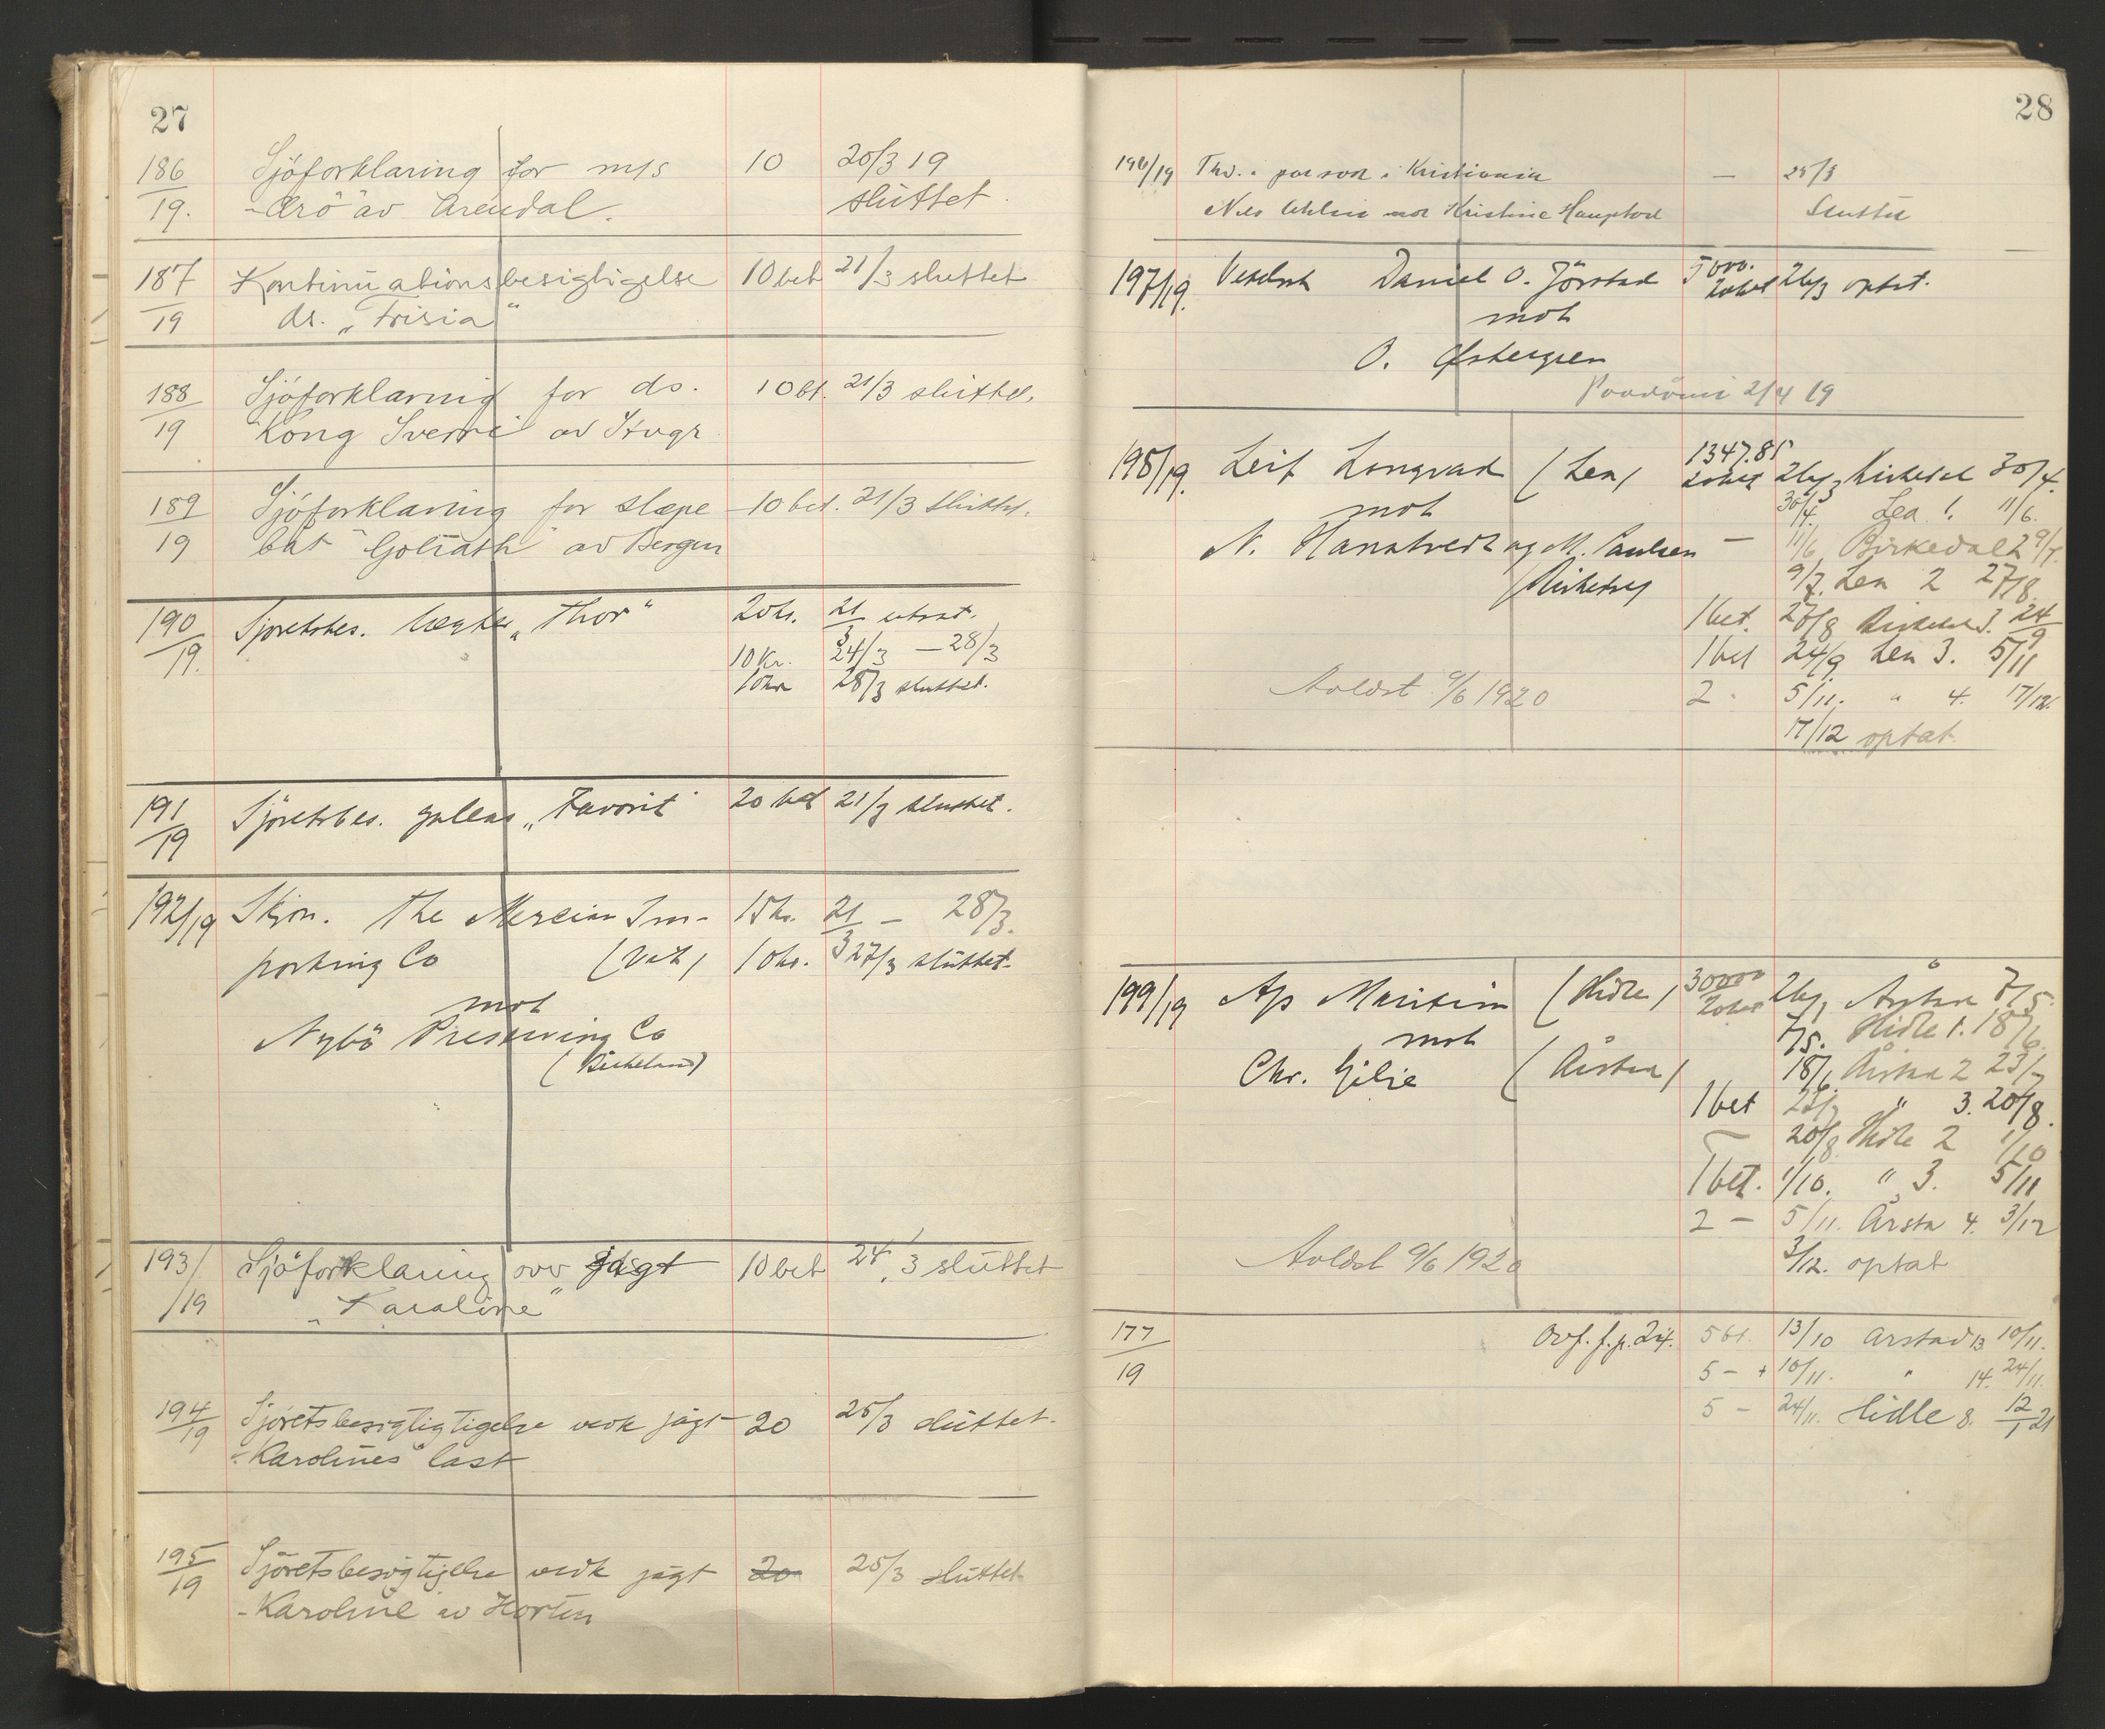 27
186/19. Sjöforklaring for m/s 10 20/3 19
"Ærö" av Arendal. sluttet.
187/19 Kontinuationsbesigtigelse 10 bet 21/3 sluttet
ds. "Frisia"
188/19 Sjöforklaring for ds. 10 bt. 21/3 sluttet.
"Kong Sverre" av
189/19 Sjöforklaring for slæpe- 10 bet. 21/3 sluttet.
båt "Goliath" av Bergen
190/19. Sjøretsbes. "Thor" 20 kr. 21/3 utsat.
10 Kr. 24/3 — 28/3
10 kr 28/3 sluttet.
191/19 Sjöretsbes. galeas "Favorit" 20 bet 21/3 sluttet.
192/19 Skjön. The Mercian Im- 15 kr. 21/3 — 28/3.
porting Co 10 kr. 27/3 sluttet.
mot
Nybö Preserving Co
(Birkeland)
193/19 Sjöforklaring over jagt 10 bet 24/3 sluttet
"Karoline"
194/19 Sjöretsbesigtigtigelse vedk jagt 20 25/3 sluttet.
"Karolines" last
195/19 Sjöretsbesigtigelse vedk jagt 20 25/3 sluttet
"Karoline av Horten
28
196/19 Thv. i person i Kristiania — 25/3
Nils mot Kristine Sluttet
197/19. Vekselsak Daniel O. Jörstad 5000. 26/3 optat.
mot
O. Østergren
2/4 19
198/19. Leif Longvad (Lea) 1347.85 26/3 Birkedal 30/4.
mot 30/4. Lea 1. 11/6.
N. Hanatvedt og M. Paulsen — 11/6 Birkedal 2 9/7.
(Birkedal) 9/7. Lea 2 27/8.
1 bet. 27/8 Birkedal 3. 24/9
1 bet 24/9 Lea 3. 5/11
Avldst 9/6 1920 2 " 5/11. " 4. 17/12.
17/12 optat
199/19 A/s Maritim (Hidle) 30000 26/3 Årstad 7/5.
mot 7/5. Hidle 1. 18/6.
Chr. Gilje (Årstad) 18/6. Årstad 2 23/7
1 bet 23/7 " 3. 20/8.
20/8. Hidle 2 1/10
1 bet. 1/10. " 3. 5/11
2 — 5/11. Årsta 4. 3/12
Avldst 9/6 1920 3/12. optat
177/19 Ovf. f. p. 24. 5 bt. 13/10 Årstad 13 10/11.
5 — + 10/11. " 14. 24/11.
5 — 24/11. Hidle 8. 12/1 21